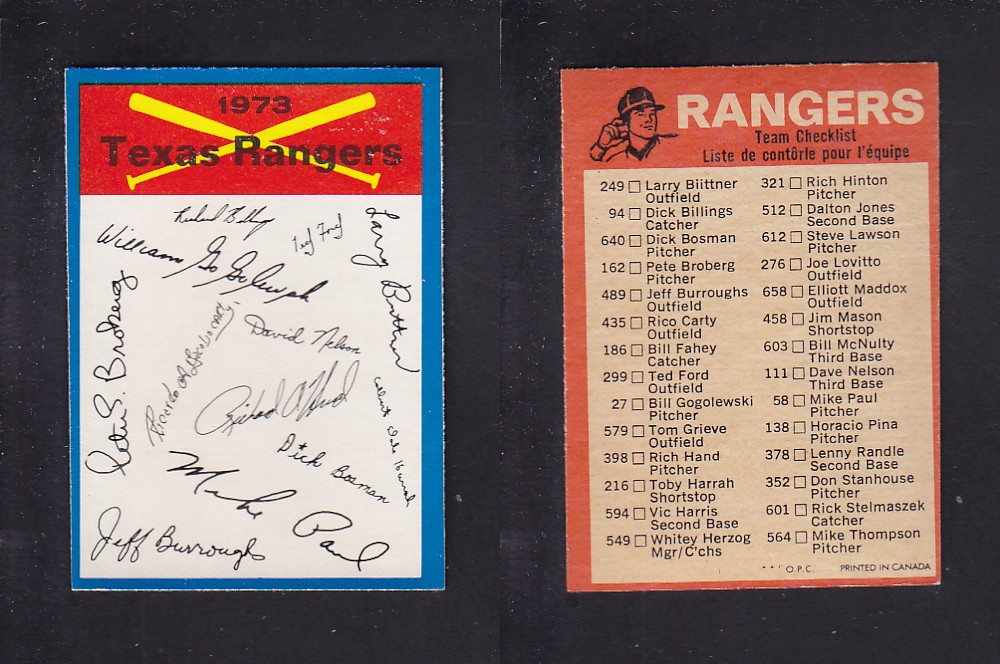 1973
Texas Rangers
Richard Billings
Ted Ford
Larry Biittner
William Gogolewski
Pete S. Broberg
David Nelson
Ricardo A Jacobo Carty
Richard A Hand
Colbert Dale Harrah
Dick Bosman
Mike Paul
Jeff Burroughs
RANGERS
Team Checklist
Liste de contôrle pour l'équipe
249 Larry Biittner
Outfield
94 Dick Billings
Catcher
640 Dick Bosman
Pitcher
162 Pete Broberg
Pitcher
489 Jeff Burroughs
Outfield
435 Rico Carty
Outfield
186 Bill Fahey
Catcher
299 Ted Ford
Outfield
27 Bill Gogolewski
Pitcher
579 Tom Grieve
Outfield
398 Rich Hand
Pitcher
216 Toby Harrah
Shortstop
594 Vic Harris
Second Base
549 Whitey Herzog
Mgr/C'chs
321 Rich Hinton
Pitcher
512 Dalton Jones
Second Base
612 Steve Lawson
Pitcher
276 Joe Lovitto
Outfield
658 Elliott Maddox
Outfield
458 Jim Mason
Shortstop
603 Bill McNulty
Third Base
111 Dave Nelson
Third Base
58 Mike Paul
Pitcher
138 Horacio Pina
Pitcher
378 Lenny Randle
Second Base
352 Don Stanhouse
Pitcher
601 Rick Stelmaszek
Catcher
564 Mike Thompson
Pitcher
**O.P.C. PRINTED IN CANADA